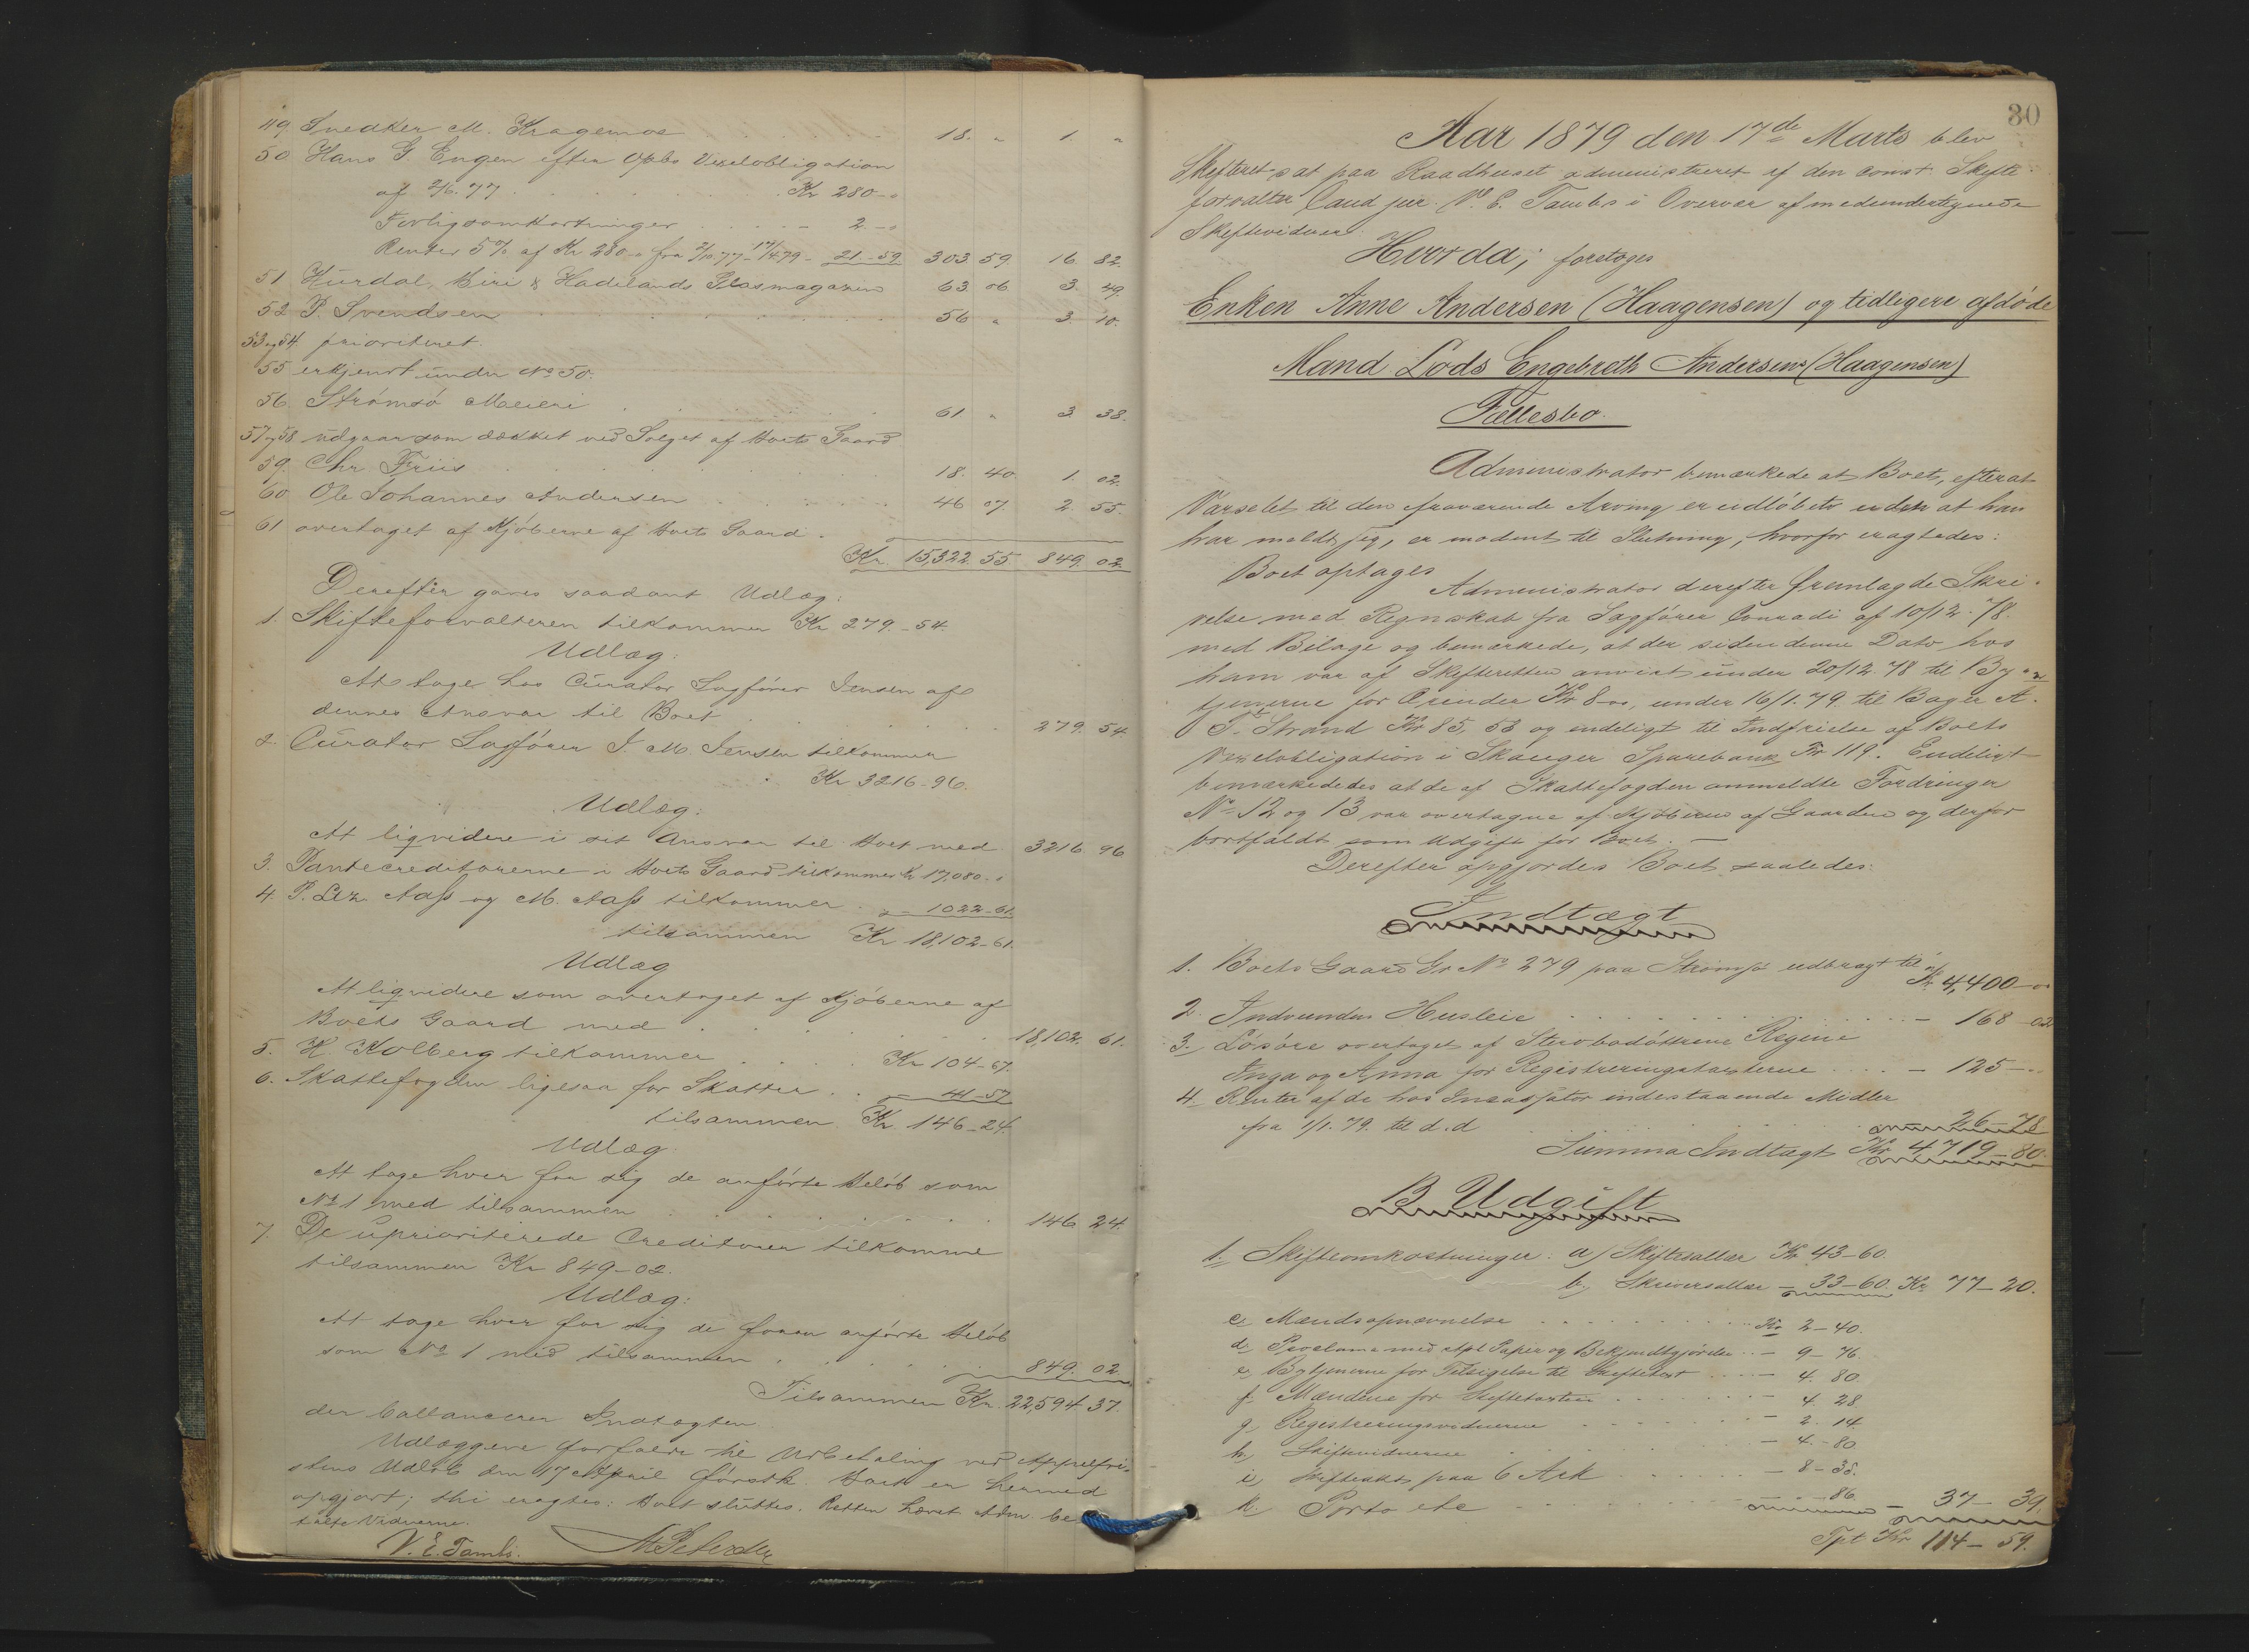 49 Snedker M. Kragemoe . . . 18. „ 1. „
50 Hans G. Engen efter Opbs Vexelobligation
af 2/6. 77 . . . Kr 280-„
Forligsomkostninger . . . – 2 –„
Renter 5% af Kr 280-„ fra 2/10 77 – 17/4 79 – 21-59 303 59 16 82.
51 Hurdal, Biri & Hadelands Glasmagazin 63. 06 3. 49.
52 P. Svendsen . . . 56 „ 3. 10.
53 og 54. prioriteret.
55 erkjendt under No 50.
56. Strömsö Meieri . . . 61 „ 3. 38.
57 og 58 udgaar som dækket ved Salget af Boets Gaard
59. Chr. Friis . . . 18. 40. 1. 02.
60 Ole Johannes Andersen . . . 46 07. 2. 55.
61 overtaget af Kjöberne af Boets Gaard.
Kr. 15,322. 55 849. 02.
Derefter gaves saadant Udlæg:
1. Skifteforvalteren tilkommer Kr 279.-54.
Udlæg:
At tage hos Curator Sagförer Jensen af
dennes Ansvar til Boet . . . 279. 54
2. Curator Sagförer J. M. Jensen tilkommer
Kr 3216-96.
Udlæg:
At liqvidere i sit Ansvar til Boet med 3216 96
3. Pantecreditorerne i Boets Gaard tilkommer Kr 17,080-„
4. P. Ltz. Aass og M. Aass tilkommer . „ – 1022-61.
tilsammen Kr 18,102-61.
Udlæg
At liqvidere som overtaget af Kjöberne af
Boets Gaard med . . . 18,102. 61.
5. H. Kolberg tilkommer . . . Kr 104-67.
6. Skattefogden ligesaa for Skatter . . – 41-57
tilsammen Kr. 146-24.
Udlæg
At tage hver for sig de anförte Belöb som
No 1 med tilsammen . . . 146 24.
7. De uprioriterede Creditorer tilkomme
tilsammen Kr 849-02.
Udlæg:
At tage hver for sig de foran anförte Belöb
som No 1 med tilsammen . . . 849. 02.
Tilsammen Kr. 22,594 37.
der ballancerer Indtægten.
Udlæggene forfalde til Udbetaling ved Appelfri-
stens Udlöb den 17 April förstk. Boet er hermed
opgjort; thi eragtes: Boet sluttes. Retten hævet. Adm. be
talte Vidnerne.
V. E. Tambs. M Petersen
30
Aar 1879 den 17de Marts blev
Skifteret sat paa Raadhuset administreret af den const. Skifte
forvalter Cand jur. V. E. Tambs i Overvær af medundertegnede
Skiftevidner.
Hvorda; foretoges
Enken Anne Andersen (Haagensen) og tidligere afdöde
Mand Lods Engebreth Andersens (Haagensen)
Fællesbo.
Administrator bemærkede at Boet, efterat
Varselet til den fraværende Arving er udlöbet uden at han
har meldt sig, er modent til Slutning, hvorfor eragtedes:
Boet optages
Administrator derefter fremlagde Skri-
velse med Regnskab fra Sagförer Conradi af 10/12. 78.
med Bilage og bemærkede, at der siden denne Dato hos
ham var af Skifteretten anvist under 20/12 78 til By-
tjenerne for Ærinder Kr 8-00, under 16/1. 79. til Bager A.
T. Strand Kr 85, 58 og endeligt til Indfrielse af Boets
Vexelobligation i Skauger Sparebank Kr 119. Endeligt
bemærkededes at de af Skattefogden anmeldte Fordringer
No 12 og 13 var overtagne af Kjöberen af Gaarden og derfor
bortfaldt som Udgift for Boet. —
Derefter opgjordes Boet saaledes:
Indtægt
1. Boets Gaard Gr No 279 paa Strömsö udbragt til Kr 4,400-00
2. Indvunden Husleie . . . – 168-02
3. Lösöre overtaget af Stervbodöttrene Regine
Inga og Anna for Registreringstaxterne . . . – 125-„
4. Renter af de hos Incassator indestaaende Midler
fra 1/1. 79. til d.d . . . 26-78
Summa Indtægt Kr 4719-80.
B Udgift
1. Skifteomkostninger: a) Skiftesallær Kr 43-60.
b, Skriversallær – 33-60. Kr 77-20.
c, Mændsopnævnelse . . . Kr 2-40.
d, Proclama med stpl Papir og Bekjendtgjörelse . . – 9-76
e, Bytjenerne for Tilsigelse til Skiftetaxt . . . – 4. 80.
f, Mændene for Skiftetaxten . . . – 4. 28
g, Registreringsvidnerne . . . – 2. 14.
h, Skiftevidnerne . . . – 4.-80
i, Skifteakt paa 6 Ark . . . – 8-35.
k. Porto etc . . . – -86. – 37-39.
Tpt Kr 114-59.